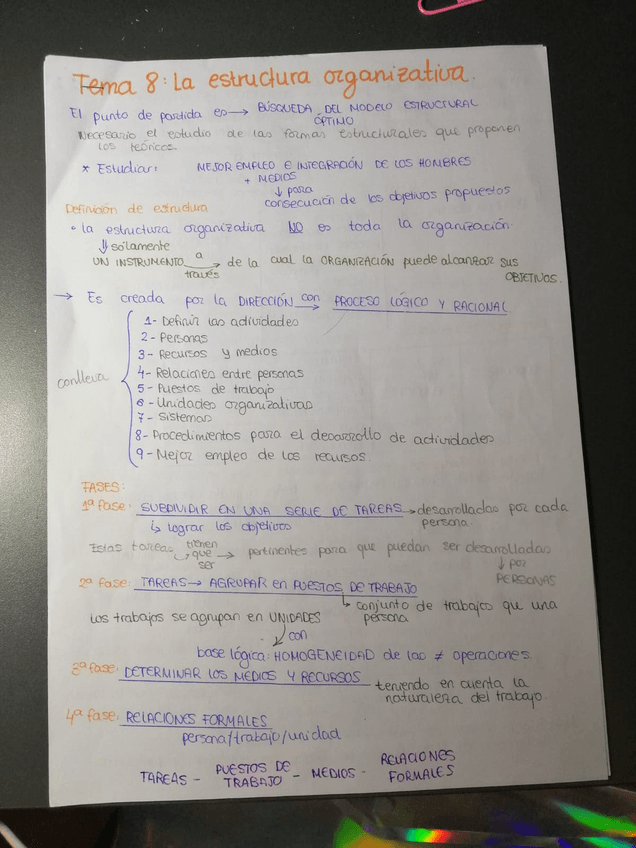 Tema 8: La estructura organizativa.
El punto de partida es → BÚSQUEDA DEL MODELO ESTRUCTURAL
ÓPTIMO
Necesario el estudio de las formas estructurales que proponen
los teóricos.
* Estudiar: MEJOR EMPLEO E INTEGRACIÓN DE LOS HOMBRES
+ MEDIOS
↓ para
consecución de los objetivos propuestos
Definición de estructura
• la estructura organizativa NO es toda la organización
⇓ sólamente
UN INSTRUMENTO a través → de la cual la ORGANIZACIÓN puede alcanzar sus
OBJETIVOS.
→ Es creada por la DIRECCIÓN con → PROCESO LÓGICO Y RACIONAL
conlleva
1- Definir las actividades
2- Personas
3- Recursos y medios
4- Relaciones entre personas
5- Puestos de trabajo
6- Unidades organizativas
7- Sistemas
8- Procedimientos para el desarrollo de actividades
9- Mejor empleo de los recursos.
FASES:
1ª fase: SUBDIVIDIR EN UNA SERIE DE TAREAS → desarrolladas por cada
persona.
↳ lograr los objetivos
Estas tareas tienen que ser → pertinentes para que puedan ser desarrolladas
↓ por
PERSONAS
2ª fase: TAREAS → AGRUPAR en PUESTOS DE TRABAJO
↳ conjunto de trabajos que una
persona
Los trabajos se agrupan en UNIDADES
↙ con
base lógica: HOMOGENEIDAD de las ≠ operaciones.
3ª fase: DETERMINAR LOS MEDIOS Y RECURSOS teniendo en cuenta la
naturaleza del trabajo
4ª fase: RELACIONES FORMALES
persona/trabajo/unidad
TAREAS - PUESTOS DE TRABAJO - MEDIOS - RELACIONES FORMALES